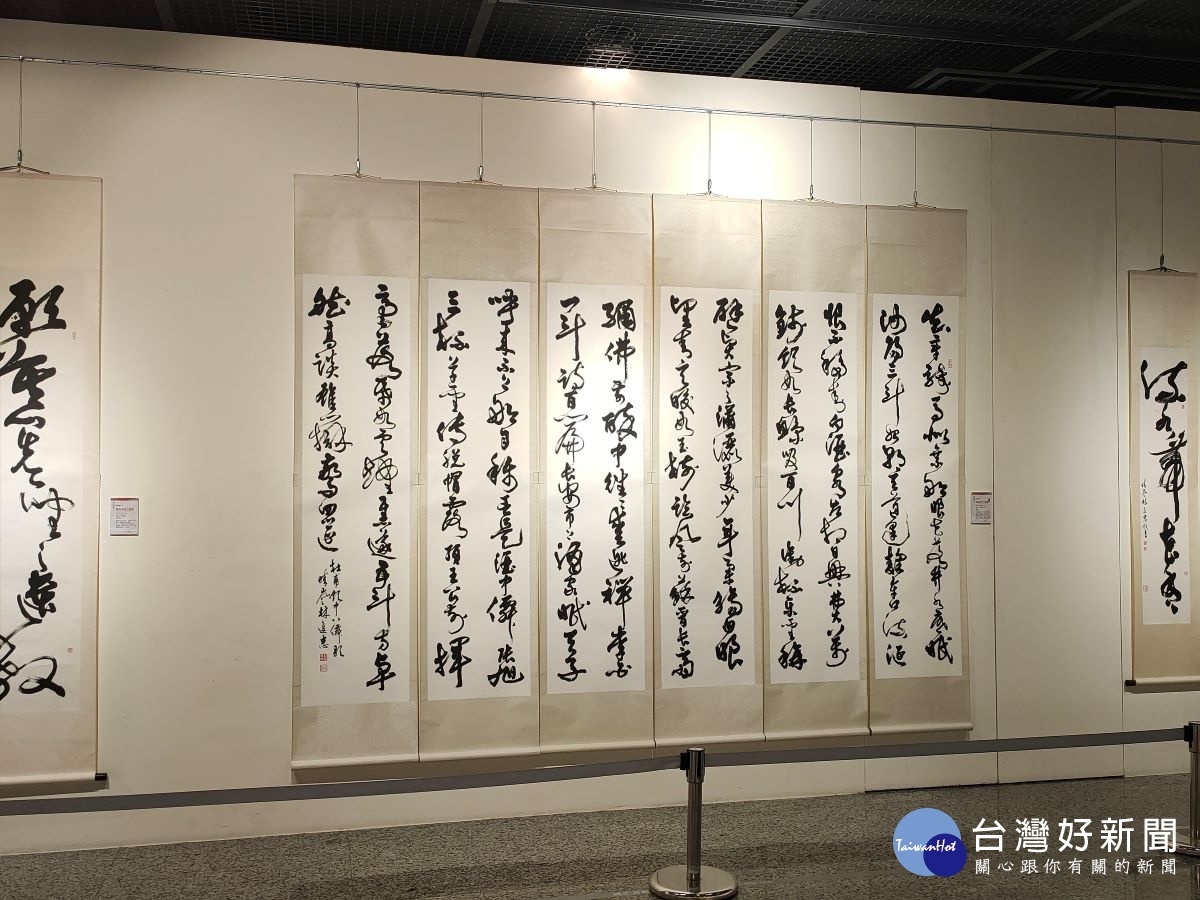 知章騎馬似乘船眼花落井水底眠
汝陽三斗始朝天道逢麴車口流涎
恨不移封向酒泉左相日興費萬
錢飲如長鯨吸百川銜杯樂聖稱
避賢宗之瀟灑美少年舉觴白眼
望青天皎如玉樹臨風前蘇晉長齋
繡佛前醉中往往愛逃禪李白
一斗詩百篇長安市上酒家眠天子
呼來不上船自稱臣是酒中僊張旭
三杯草聖傳脫帽露頂王公前揮
毫落紙如雲煙焦遂五斗方卓
然高談雄辯驚四筵
杜甫飲中八僊歌
林進忠
TaiwanHot
台灣好新聞
關心跟你有關的新聞